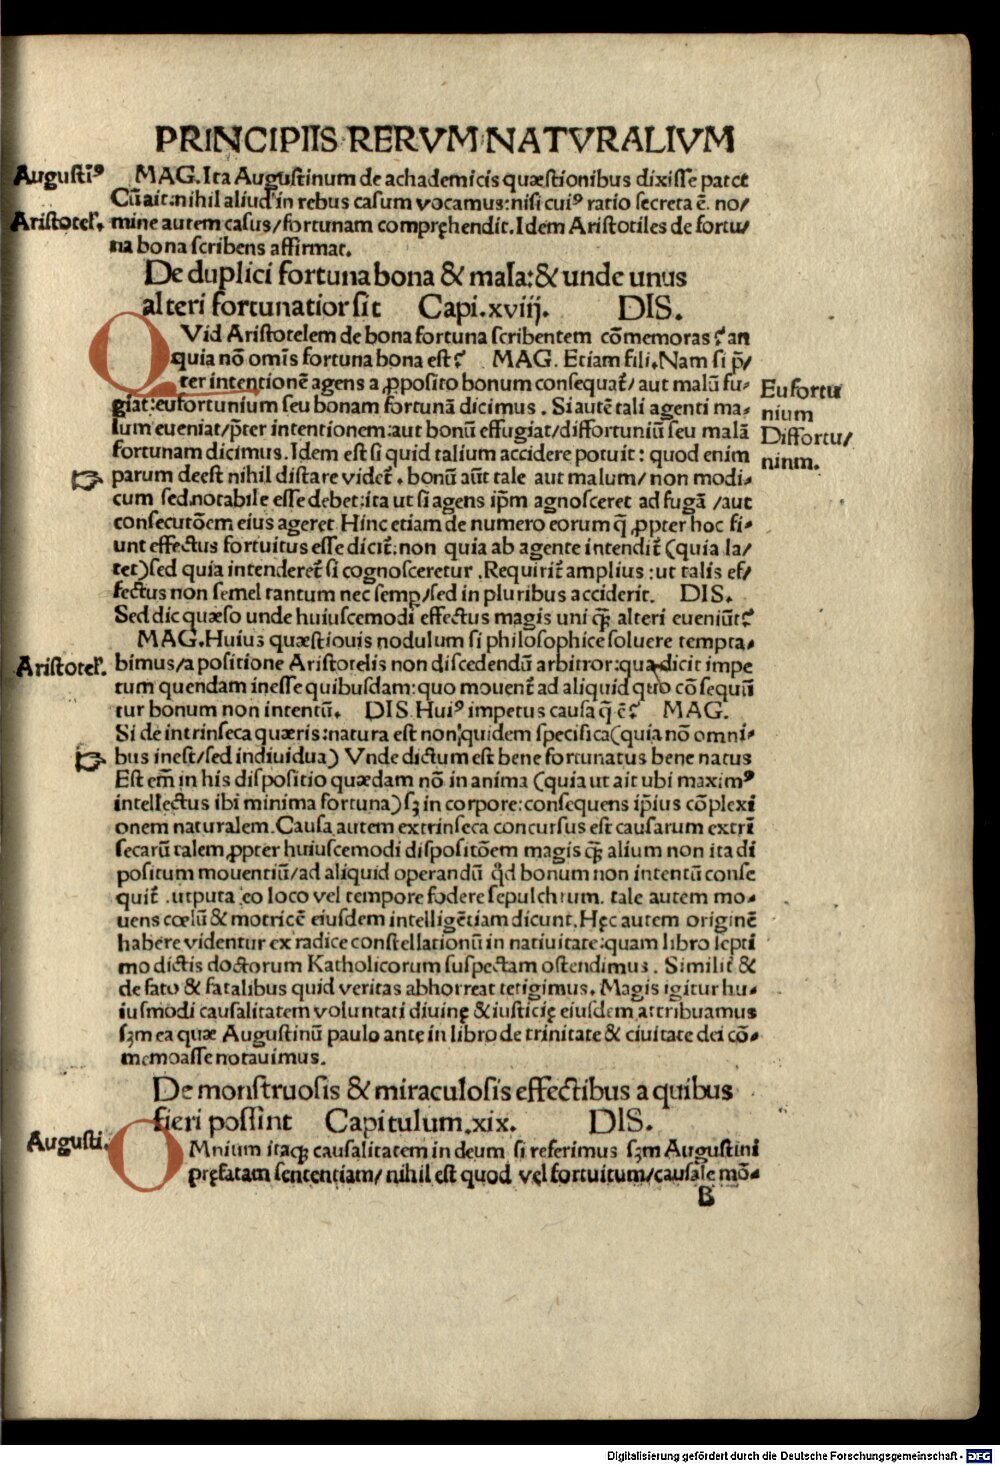 PRINCIPIIS RERVM NATVRALIVM
Augusti᷒ꝰ
MAG. Ita Augustinum de achademicis quæstionibus dixisse patet
Cũ ait: nihil aliud in rebus casum vocamus: nisi cuiꝰ ratio secreta ē. no/
Aristotel̕.
mine autem casus/ fortunam compręhendit. Idem Aristotiles de fortu/
na bona scribens affirmat.
De duplici fortuna bona & mala: & unde unus
alteri fortunatior sit Capi. xviij. DIS.
QVid Aristotelem de bona fortuna scribentem cōmemoras? an
quia nō omīs fortuna bona est? MAG. Etiam fili. Nam si p̄/
ter intentionē agens a ꝓposito bonum consequat̃/ aut malū fu-
giat: eufortunium seu bonam fortunā dicimus. Si autē tali agenti ma-
lum eueniat/ p̄ter intentionem: aut bonū effugiat/ diffortuniū seu malā
fortunam dicimus. Idem est si quid talium accidere potuit: quod enim
Eufortu
nium
Diffortu/
nium.
parum deest nihil distare videt̃. bonū aūt tale aut malum/ non modi-
cum sed notabile esse debet: ita ut si agens ip̄m agnosceret ad fugā /aut
consecutōem eius ageret Hinc etiam de numero eorum q̄ ꝓpter hoc fi-
unt effectus fortuitus esse dicit̃: non quia ab agente intendit̃ (quia la/
tet) sed quia intenderet̃ si cognosceretur. Requirit̃ amplius: ut talis ef/
fectus non semel tantum nec semp̱/ sed in pluribus acciderit. DIS.
Sed dic quæso unde huiuscemodi effectus magis uni q̃ȝ alteri eueniūt?
MAG. Huius quæstiouis nodulum si philosophice soluere tempta-
Aristotel̕.
bimus/ a positione Aristotelis non discedendū arbitror: qua dicit impe
tum quendam inesse quibusdam: quo mouent̃ ad aliquid quo cōsequū
tur bonum non intentū. DIS Huiꝰ impetus causa q̄ ē? MAG.
Si de intrinseca quæris: natura est non quidem specifica (quia nō omni-
bus inest/ sed indiuidua) Vnde dictum est bene fortunatus bene natus
Est em̄ in his dispositio quædam nō in anima (quia ut ait ubi maximꝰ
intellectus ibi minima fortuna) sȝ in corpore: consequens ip̄ius cōplexi
onem naturalem. Causa autem extrinseca concursus est causarum extrī
secarū talem ꝓpter huiuscemodi dispositōem magis q̃ȝ alium non ita di
positum mouentiū/ ad aliquid operandū qd̄ bonum non intentū conse
quit̃. utputa eo loco vel tempore fodere sepulchrum. tale autem mo-
uens cœlū & motricē eiusdem intelligētiam dicunt. Hęc autem originē
habere videntur ex radice constellationū in natiuitate: quam libro septi
mo dictis doctorum Katholicorum suspectam ostendimus. Similit̃ &
de fato & fatalibus quid veritas abhorreat tetigimus. Magis igitur hu-
iusmodi causalitatem voluntati diuinę & iusticię eiusdem attribuamus
sȝm ea quæ Augustinū paulo ante in libro de trinitate & ciuitate dei cō-
memoasse notauimus.
De monstruosis & miraculosis effectibus a quibus
fieri possint Capitulum. xix. DIS.
Augusti.
OMnium itaqȝ causalitatem in deum si referimus sȝm Augustini
pręfatam sententiam/ nihil est quod vel fortuitum/ causale mō-
B
Digitalisierung gefördert durch die Deutsche Forschungsgemeinschaft - DFG